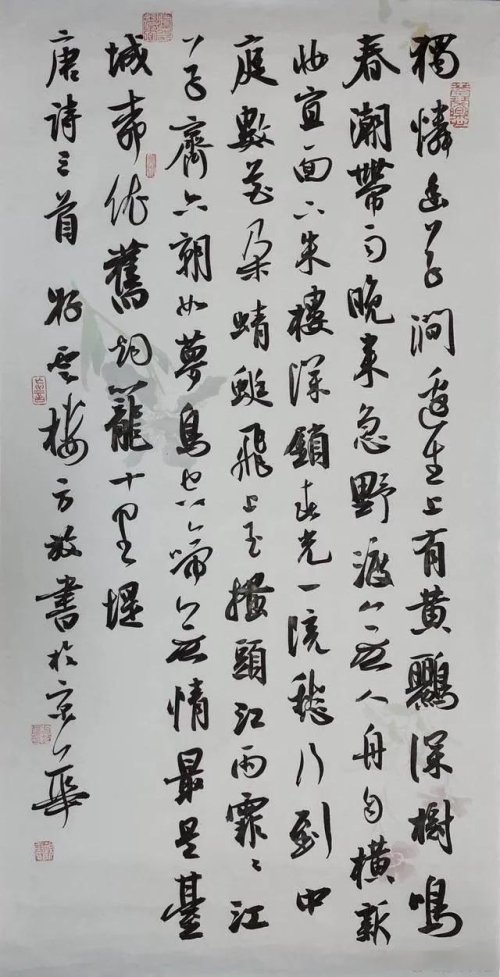 獨憐幽草澗邊生上有黃鸝深樹鳴
春潮帶雨晚來急野渡無人舟自橫新
妝宜面下朱樓深鎖春光一院愁行到中
庭數花朵蜻蜓飛上玉搔頭江雨霏〻江
草齊六朝如夢鳥空啼無情最是臺
城柳依舊煙籠十里堤
唐詩三首 云樓方放書於京華